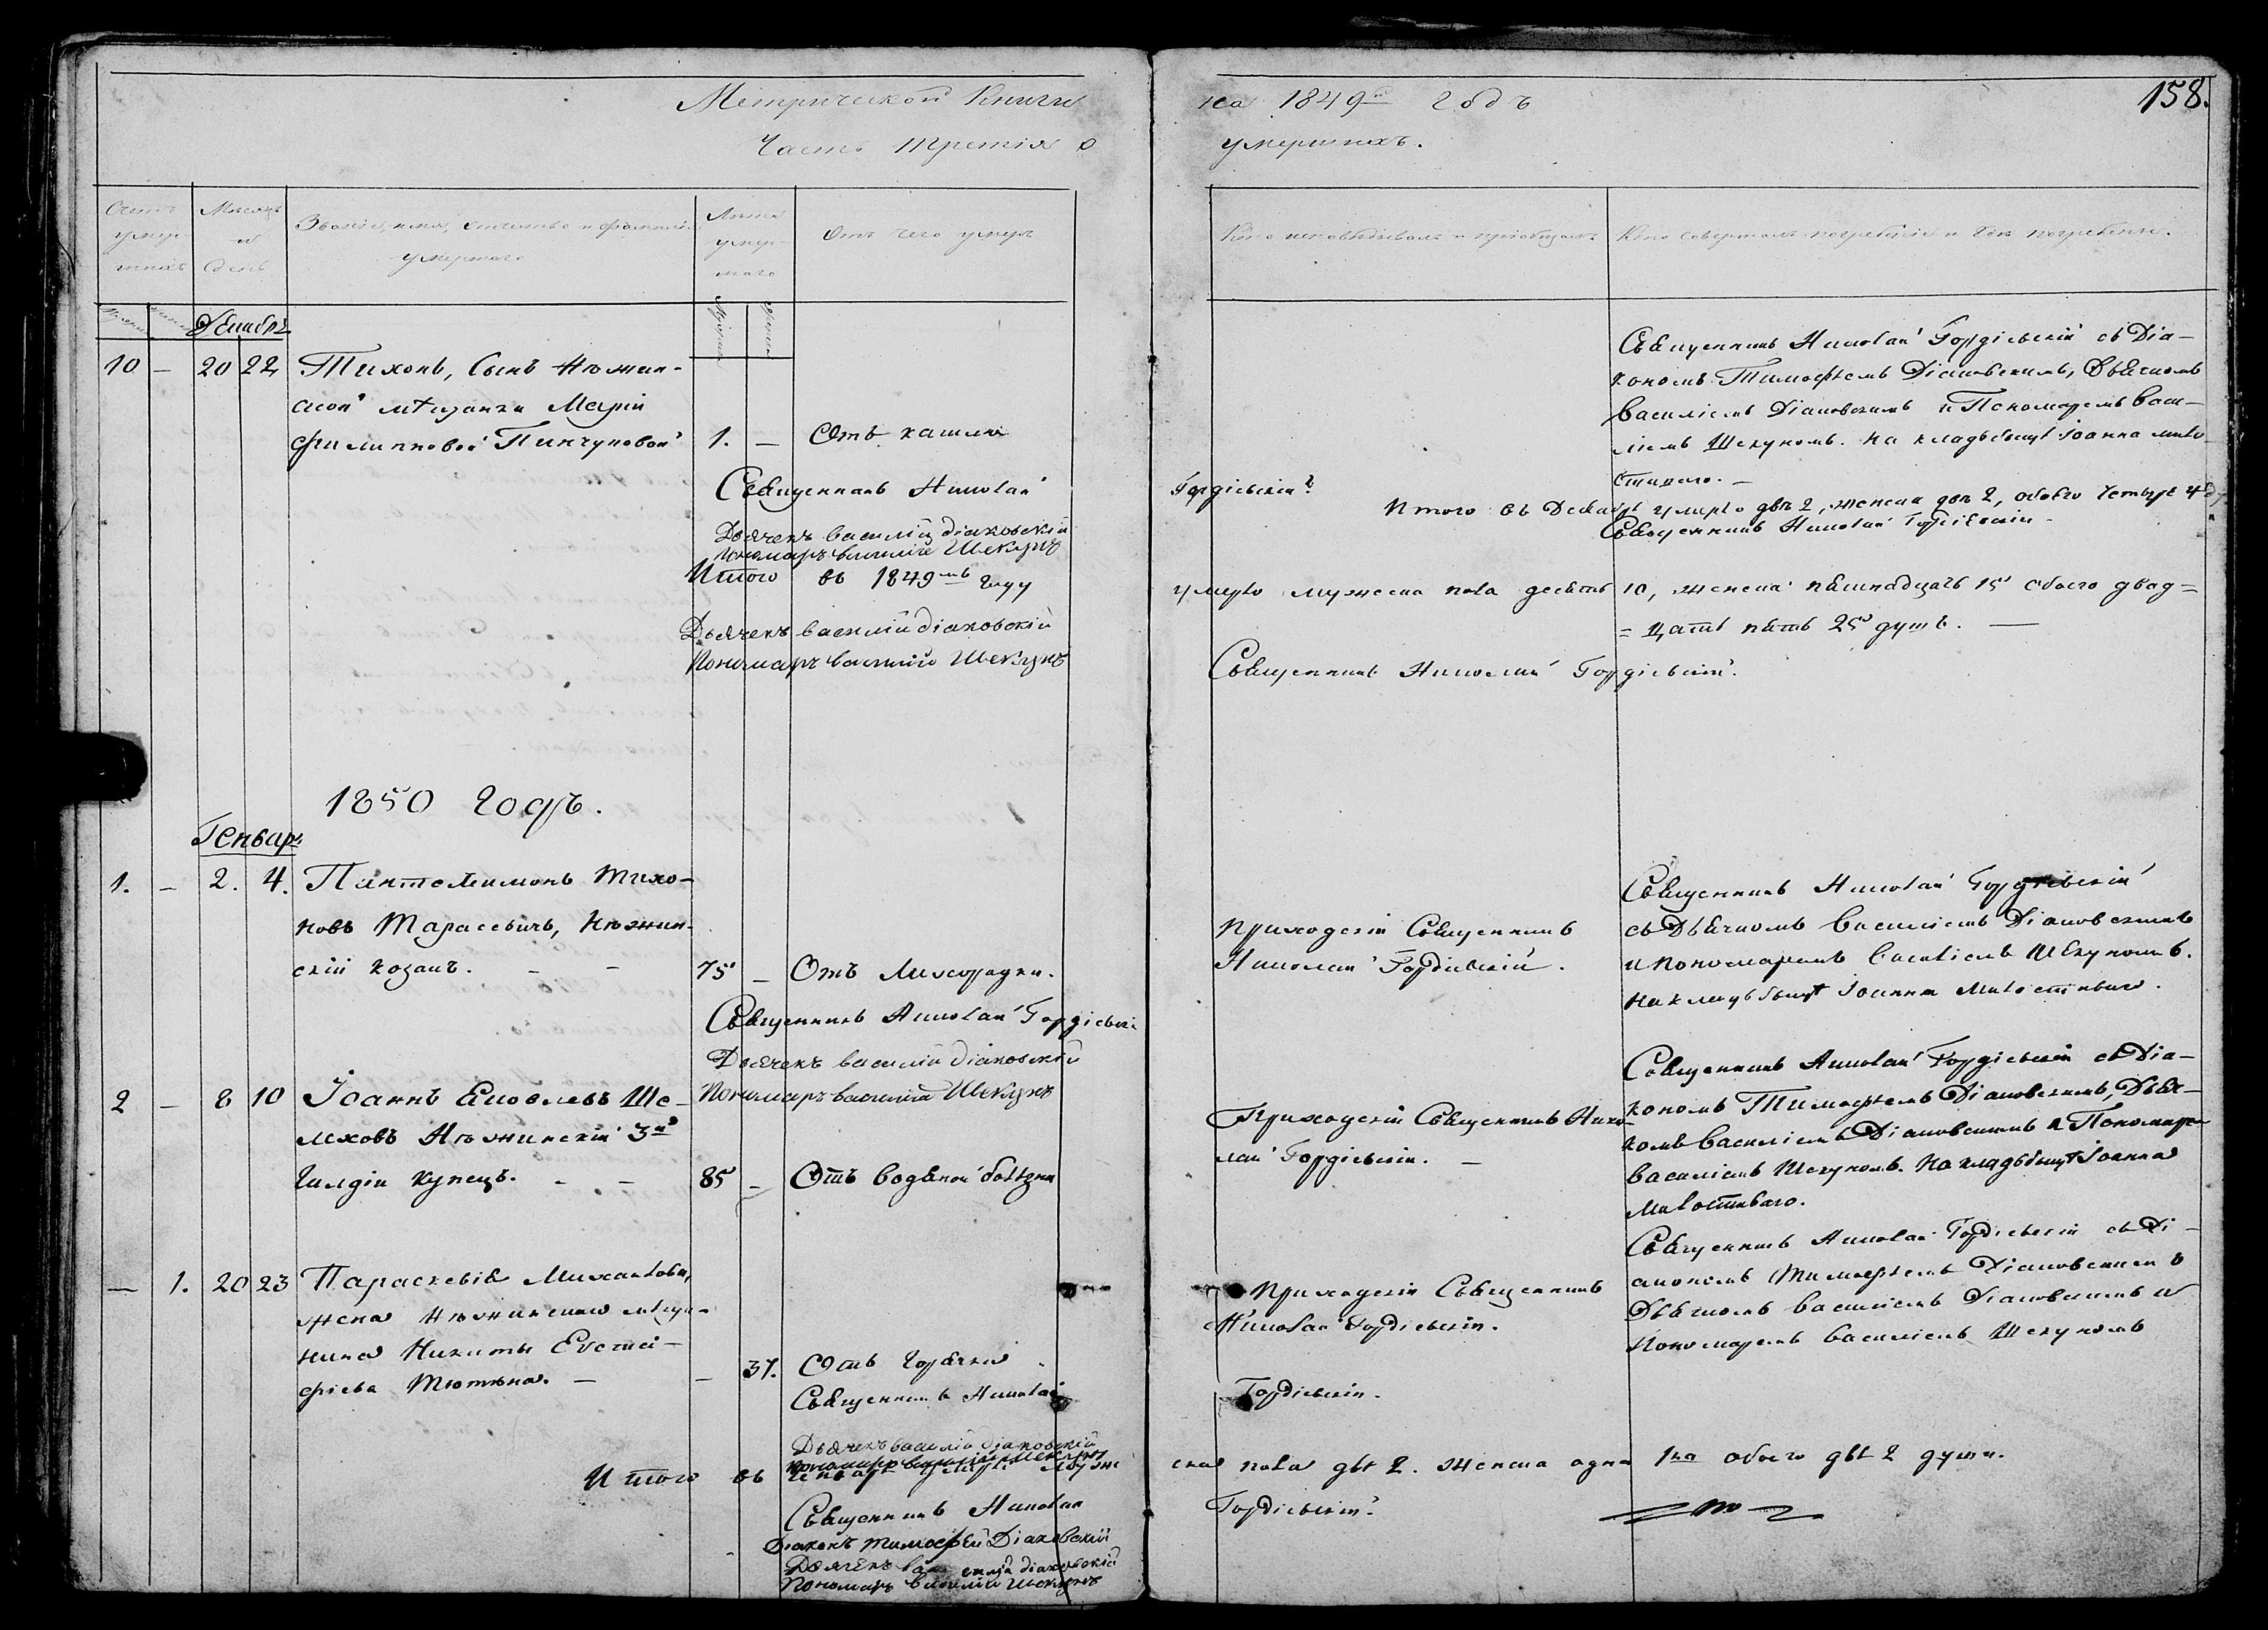 Метрической Книги на 1849й годъ
158.
Часть третія о умершихъ.
Счетъ умер-шихъ
Мѣсяцъ и день
Званіе, имя, отчество и фамилія умершаго
Лѣта умер-шаго
Отъ чего умеръ
Кто исповѣдывалъ и пріобщалъ
Кто совершалъ погребеніе и гдѣ погребены.
Декабрь
10 — 20 22 Тихонъ, Сынъ Нѣжин-
ской мѣщанки Маріи
Филипповой Пинчуковой 1. — Отъ кашля
Священникъ Николай Гордіевскій съ Діа-
кономъ Тимоѳеемъ Діаковскимъ, Дьячкомъ
Василіемъ Діаковскимъ и Пономаремъ Васи-
ліемъ Шекуномъ. На кладбищѣ Іоанна мило-
стиваго. —
Священникъ Николай Гордіевскій
Итого въ Декабрѣ умерло два 2, женска два 2, обоего четыре 4
Священникъ Николай Гордіевскій
Дьячекъ Василій Діаковскій
Пономарь Василій Шекунъ
Итого въ 1849мъ году умерло мужеска пола десять 10, женска пятнадцать 15 обоего двад=
=цать пять 25 душъ. —
Дьячекъ Василій Діаковскій
Пономарь Василій Шекунъ
Священникъ Николай Гордіевскій.
1850 годъ.
Генварь
1. — 2. 4. Пантелеимонъ Тихо-
новъ Тарасевичъ, Нѣжин-
скій козакъ. — — 75 — Отъ Лихорадки.
Приходскій Священникъ
Николай Гордіевскій.
Священникъ Николай Гордіевскій
съ Дьячкомъ Василіемъ Діаковскимъ
и пономаремъ Василіемъ Шекуномъ.
На кладбищѣ Іоанна Милостиваго.
Священникъ Николай Гордіевскі
Дьячекъ Василій Діаковскій
Пономарь Василій Шекунъ
2 — 8 10 Іоаннъ Яковлевъ Ше-
лховъ Нѣжинскій 3й
Гилдіи купецъ. — — 85 — Отъ водяной болѣзни
Приходскій Священникъ Нико-
лай Гордіевскій. —
Священникъ Николай Гордіевскій съ Діа-
кономъ Тимоѳеемъ Діаковскимъ, Дьяч-
комъ Василіемъ Діаковскимъ и Пономаре
Василіемъ Шекуномъ. На кладбищѣ Іоанна
Милостиваго.
— 1. 20 23 Параскевія Михайлова,
жена Нѣжинскаго мѣща-
нина Никиты Евста-
фіева — — 37. Отъ Горячки
Приходскій Священникъ
Николай Гордіевскій.
Священникъ Николай Гордіевскій съ Ді-
акономъ Тимоѳеемъ Діаковскимъ
Дьячкомъ Василіемъ Діаковскимъ и
Пономаремъ Василіемъ Шекуномъ
Священникъ Николай Гордіевскій.
Дьячекъ Василій Діаковскій
Пономарь Василій Шекунъ
Итого въ Генварѣ умерло муже
ска пола два 2. женска одна 1на обоего два 2 души.
Священникъ Николай Гордіевскій
Діаконъ Тимоѳей Діаковскій
Дьячекъ Василій Діаковскій
Пономарь Василій Шекунъ